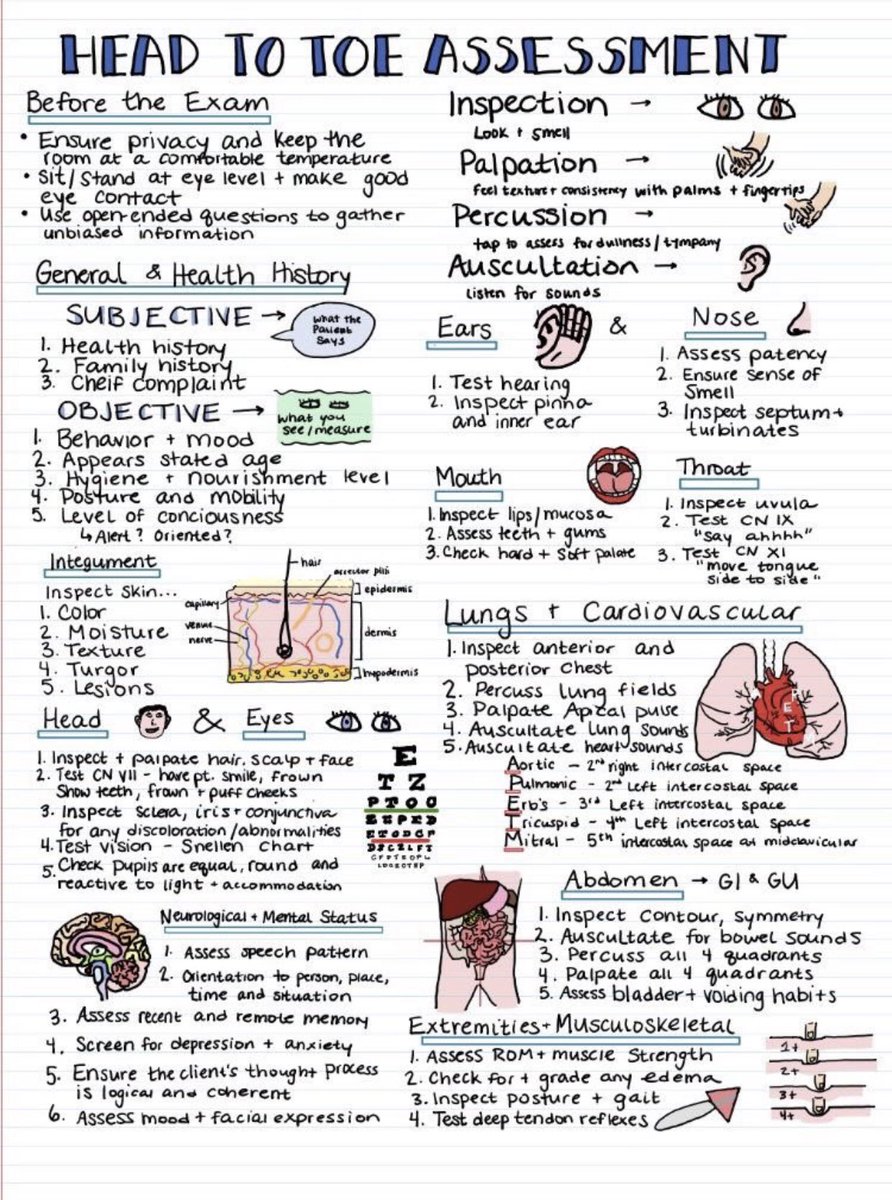 HEAD TO TOE ASSESSMENT
Before the Exam
• Ensure privacy and keep the
room at a comfortable temperature
• Sit/Stand at eye level + make good
eye contact
• Use open-ended questions to gather
unbiased information
Inspection →
Look + Smell
Palpation →
feel texture + consistency with palms + fingertips
Percussion →
tap to assess for dullness/tympany
Auscultation →
Listen for sounds
General & Health History
SUBJECTIVE →
what the
Patient
Says
1. Health history
2. Family history
3. Cheif complaint
OBJECTIVE →
what you
see/measure
1. Behavior + mood
2. Appears stated age
3. Hygiene + nourishment level
4. Posture and mobility
5. Level of conciousness
↳ Alert? Oriented?
Ears
&
1. Test hearing
2. Inspect pinna
and inner ear
Nose
1. Assess patency
2. Ensure sense of
Smell
3. Inspect septum +
turbinates
Mouth
1. Inspect lips/mucosa
2. Assess teeth + gums
3. Check hard + soft palate
Throat
1. Inspect uvula
2. Test CN IX
"say ahhhh"
3. Test CN XI
"move tongue
side to side"
Integument
Inspect Skin...
1. Color
2. Moisture
3. Texture
4. Turgor
5. Lesions
hair
arrector pili
epidermis
capillary
venule
nerve
dermis
hypodermis
Lungs + Cardiovascular
1. Inspect anterior and
posterior chest
2. Percuss lung fields
3. Palpate Apical pulse
4. Auscultate lung sounds
5. Auscultate heart sounds
Aortic - 2nd right intercostal space
Pulmonic - 2nd Left intercostal space
Erb's - 3rd Left intercostal space
Tricuspid - 4th Left intercostal space
Mitral - 5th intercostal space at midclavicular
Head & Eyes
1. Inspect + palpate hair, scalp + face
2. Test CN VII - have pt. smile, frown
Show teeth, frown + puff cheeks
3. Inspect sclera, iris + conjunctiva
for any discoloration/abnormalities
4. Test vision - Snellen Chart
5. Check pupils are equal, round and
reactive to light + accommodation
E
T Z
Abdomen → GI & GU
1. Inspect contour, symmetry
2. Auscultate for bowel sounds
3. Percuss all 4 quadrants
4. Palpate all 4 quadrants
5. Assess bladder + voiding habits
Neurological + Mental Status
1. Assess speech pattern
2. Orientation to person, place,
time and situation
3. Assess recent and remote memory
4. Screen for depression + anxiety
5. Ensure the client's thought process
is logical and coherent
6. Assess mood + facial expression
Extremities + Musculoskeletal
1. Assess ROM + muscle strength
2. Check for + grade any edema
3. Inspect posture + gait
4. Test deep tendon reflexes
1+
2+
3+
4+